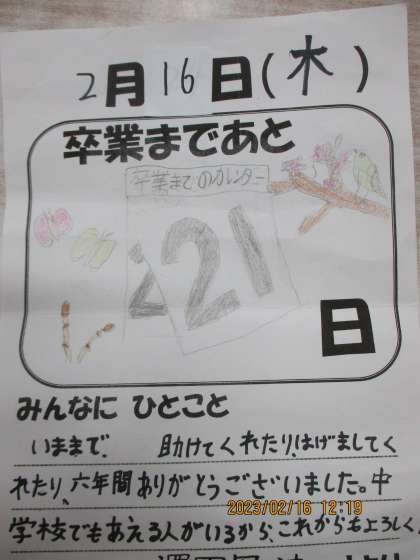 2月16日(木)
卒業まであと
卒業までのカレンダー
21
日
みんなに ひとこと
いままで、 助けてくれたり、はげましてく
れたり、六年間ありがとうございました。中
2023/02/16 12:19
学校でもあえる人がいるから、これからもよろしく、